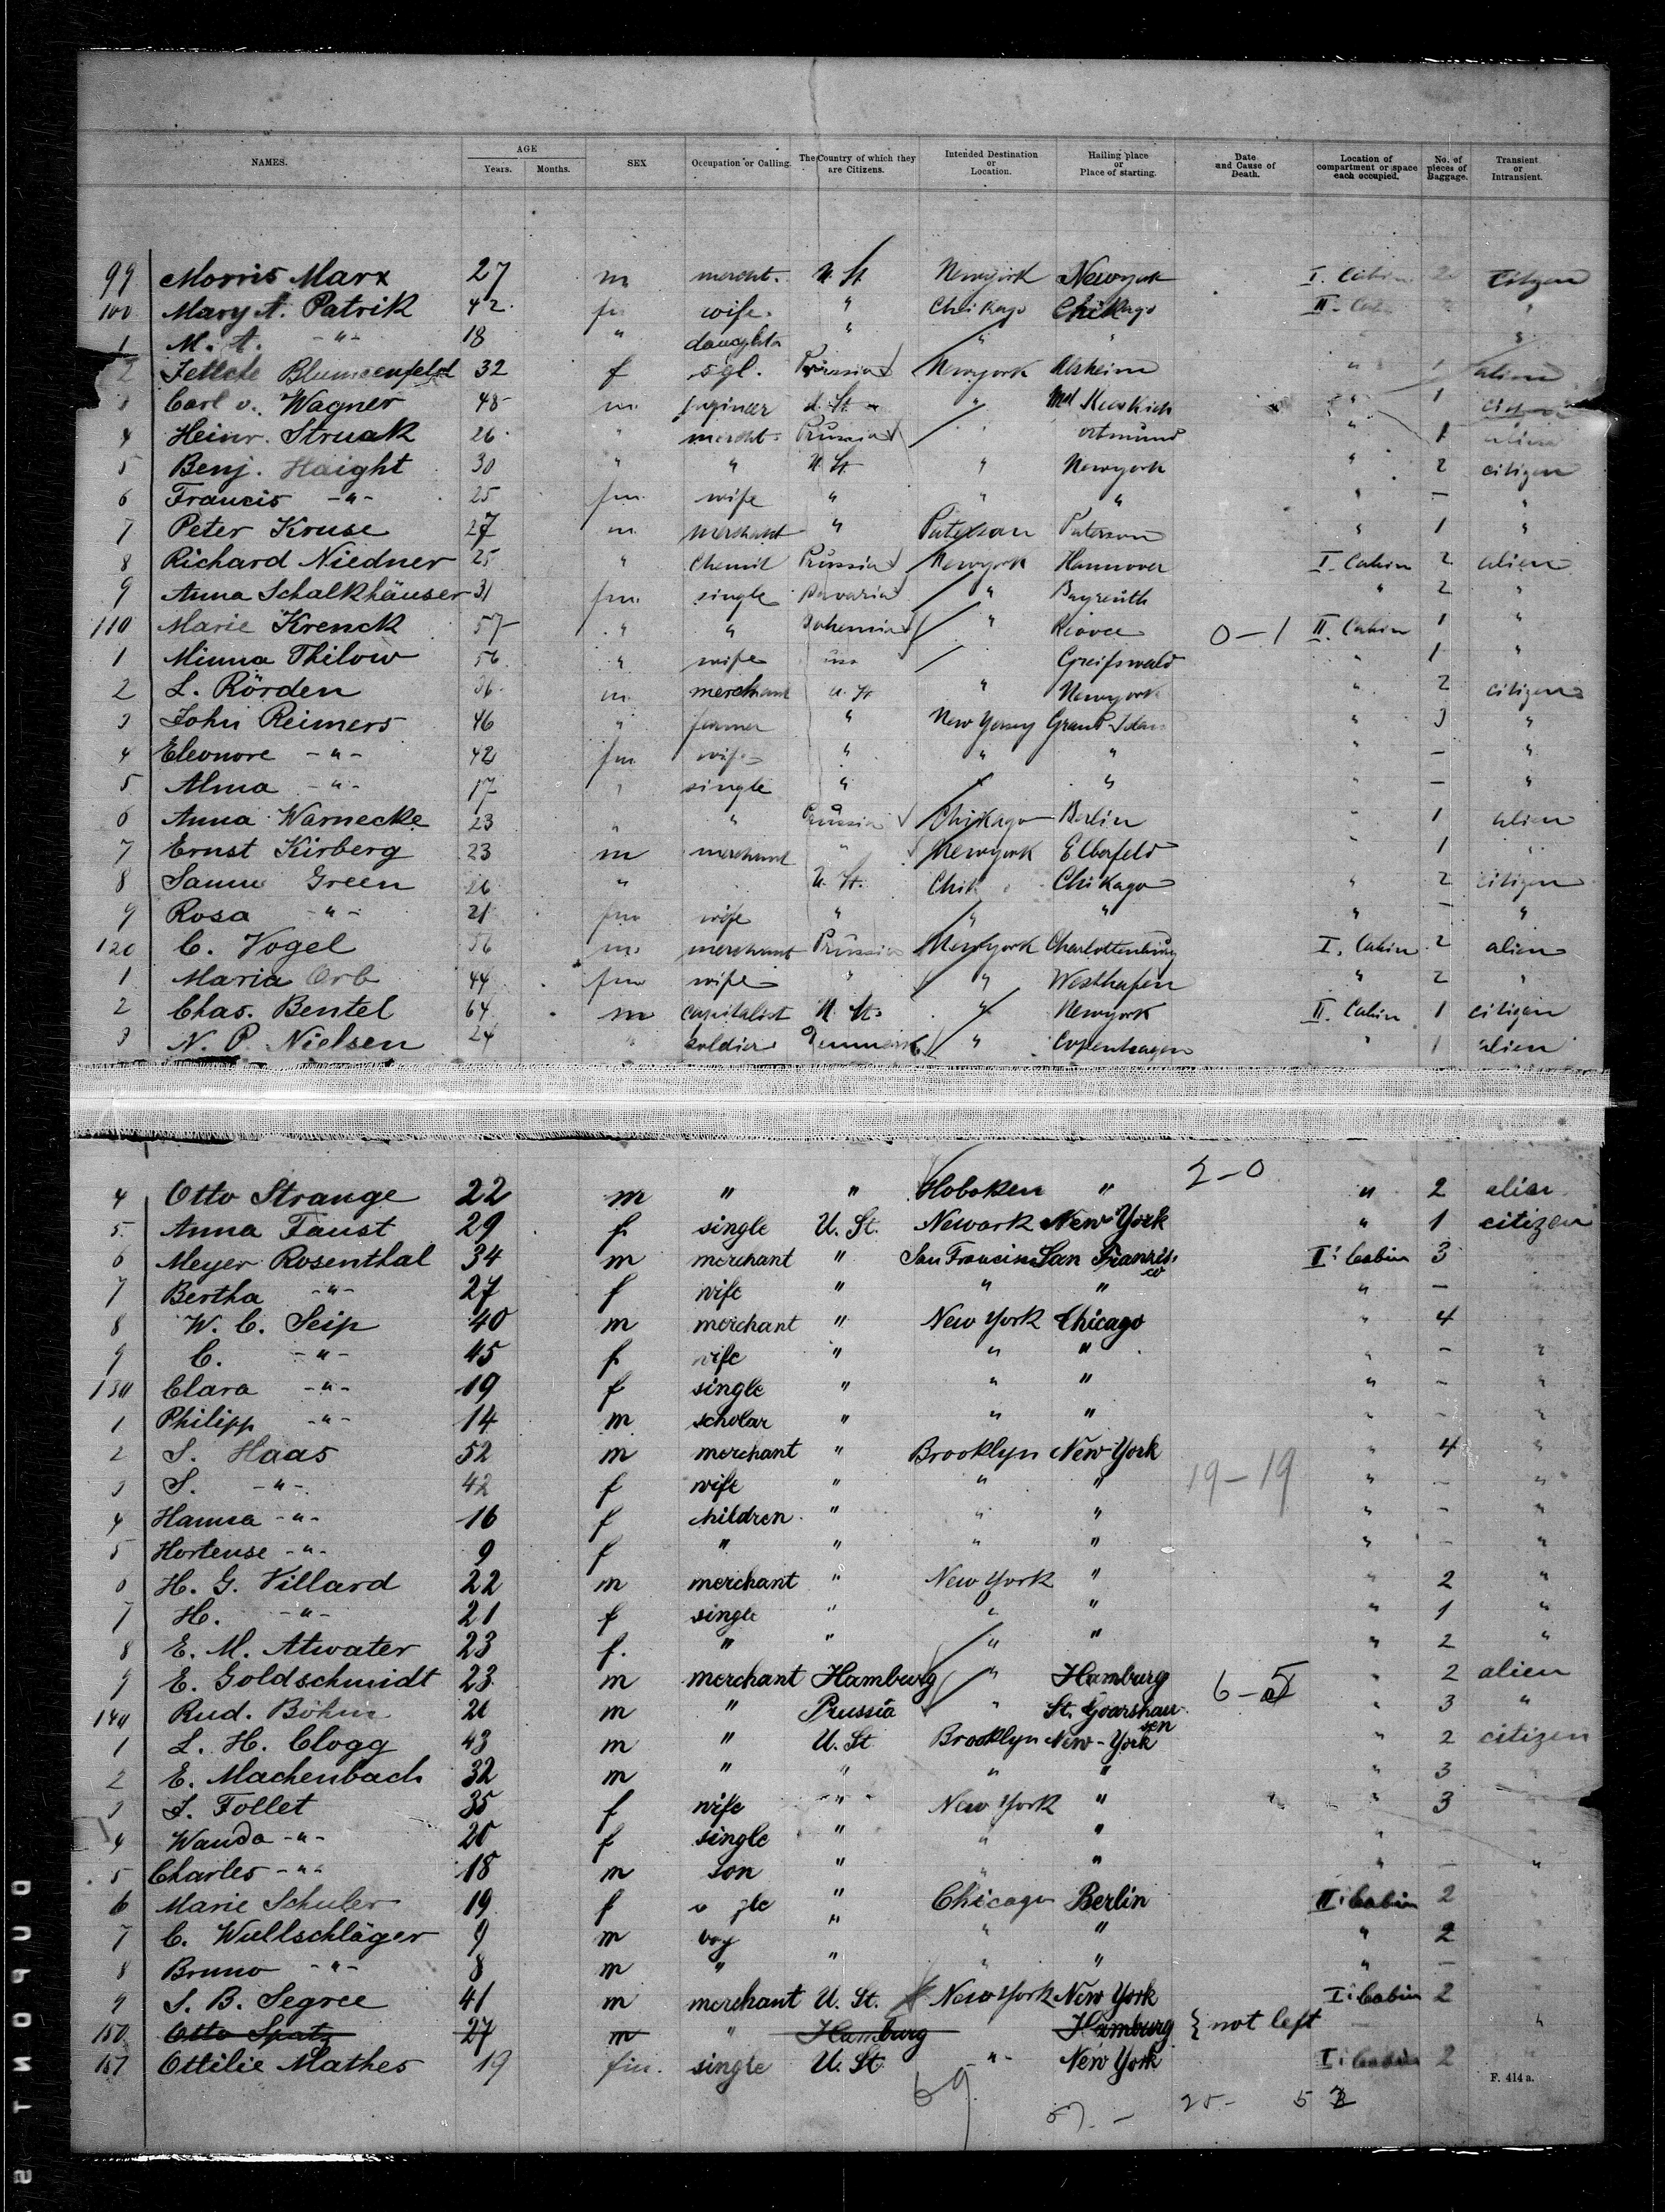 NAMES. AGE Years. Months. SEX Occupation or Calling. The Country of which they are Citizens. Intended Destination or Location. Hailing place or Place of starting. Date and Cause of Death. Location of compartment or space each occupied. No. of pieces of Baggage. Transient or Intransient.
99 Morris Marx 27 m mercht. U. St Newyork Newyork I. Cabin 2 Citizen
100 Mary A. Patrik 42 fm wife " Chikago Chikago II. Cab "
1 M. A. -"- 18 " daughter " " " "
2 Blumeenfeld 32 f sgl. Prussia Newyork Alsheim " 1 alien
3 Carl v. Wagner 48 m. Engineer U. St " " 1
4 Heinr. Struak 26 " mercht. Prussia " ortmund " 1 alien
5 Benj. Haight 30 " " U. St " Newyork " 2 citizen
6 Francis -"- 25 fm. wife " " " " - "
7 Peter Kruse 27 m. merchant " Paterson Paterson " 1 "
8 Richard Niedner 25 " Chemil Prussia Newyork Hannover I. Cabin 2 alien
9 Anna Schalkhäuser 31 fm. single Bavaria " Bayreuth " 2 "
110 Marie Krenck 57 " " Bohemia " 0-1 II. Cabin 1 "
1 Minna Thilow 56 " wife Greifswald " 1 "
2 L. Rörden 36 m. merchant U. St " Newyork " 2 citizen
3 John Reimers 46 " farmer " New Yersey Grand " 3 "
4 Eleonore -"- 42 fm wife " " " " - "
5 Alma -"- 17 " single " " " " - "
6 Anna Warnecke 23 " " Prussia Chikago Berlin " 1 alien
7 Ernst Kirberg 23 m merchant " Newyork Elberfeld " 1 "
8 Green 26 " U. St. Chik Chikago " 2 citizen
9 Rosa -"- 21 fm wife " " " " - "
120 C. Vogel 56 m. merchant Prussia Newyork Charlottenburg I. Cabin 2 alien
1 Maria Orb 44 fm wife " " Westhafen " 2 "
2 Chas. Bentel 64 m capitalist U. St. " Newyork II. Cabin 1 citizen
3 N. P. Nielsen 24 " soldier Denmark " Copenhagen " 1 alien
4 Otto Strange 22 m " " Hoboken " 2-0 " 2 alien
5 Anna Faust 29 f. single U. St. Newark New York " 1 citizen
6 Meyer Rosenthal 34 m merchant " San Francisco San Franzisco I: Cabin 3
7 Bertha -"- 27 f wife " " " " -
8 W. C. Seip 40 m merchant " New York Chicago " 4
9 C. -"- 45 f. wife " " " " - "
130 Clara -"- 19 f single " " " " - "
1 Philipp -"- 14 m scholar " " " " - "
2 S. Haas 52 m merchant " Brooklyn New York " 4 "
3 S. -"- 42 f wife " " " 19-19 " - "
4 Hanna -"- 16 f children " " " " - "
5 Hortense -"- 9 f " " " " " - "
6 H. G. Villard 22 m merchant " New York " " 2 "
7 H. -"- 21 f single " " " " 1 "
8 E. M. Atwater 23 f. " " " " " 2 "
9 E. Goldschmidt 23 m merchant Hamburg " Hamburg 6-5 " 2 alien
140 Rud. Böhm 21 m " Prussia " St. Goarshausen " 3 "
1 L. H. Clogg 43 m " U. St Brooklyn New-York " 2 citizen
2 E. Machenbach 32 m " " " " " 3
3 S. Follet 35 f wife " New York " " 3
4 Wanda -"- 20 f single " " " "
5 Charles -"- 18 m son " " " " - "
6 Marie Schuler 19 f " Chicago Berlin II: Cabin 2
7 C. Wullschläger 9 m boy " " " " 2
8 Bruno -"- 8 m " " " " " -
9 S. B. Segree 41 m merchant U. St. New York New York I: Cabin 2
150 Otto Spatz 27 m " Hamburg Hamburg } not left - "
151 Ottilie Mathes 19 fm. single U. St. -"- New York I: Cabin 2
F. 414 a.
69 25- 5